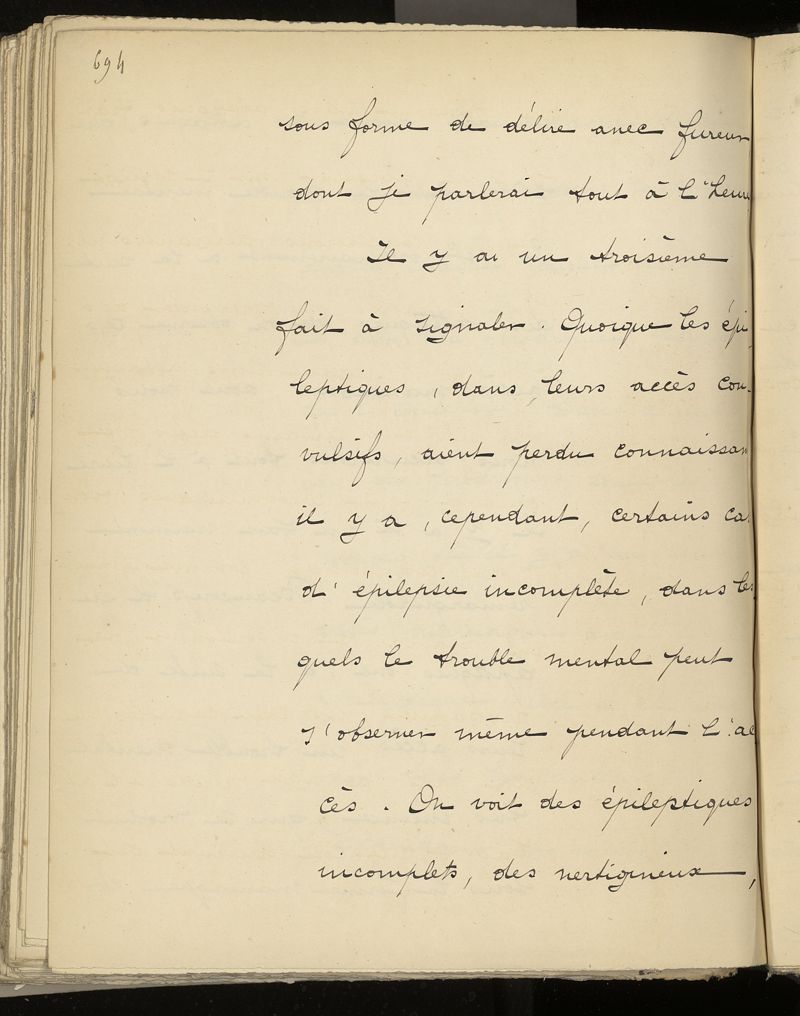 694
sous forme de délire avec fureur
dont je parlerai tout à l'heur
Il y a un troisième
fait à signaler. Quoique les épi
leptiques, dans leurs accès con-
vulsifs, aient perdu connaissan
il y a, cependant, certains ca
d'épilepsie incomplète, dans les
quels le trouble mental peut
s'observer même pendant l'ac
cès. On voit des épileptiques
incomplets, des vertigineux,